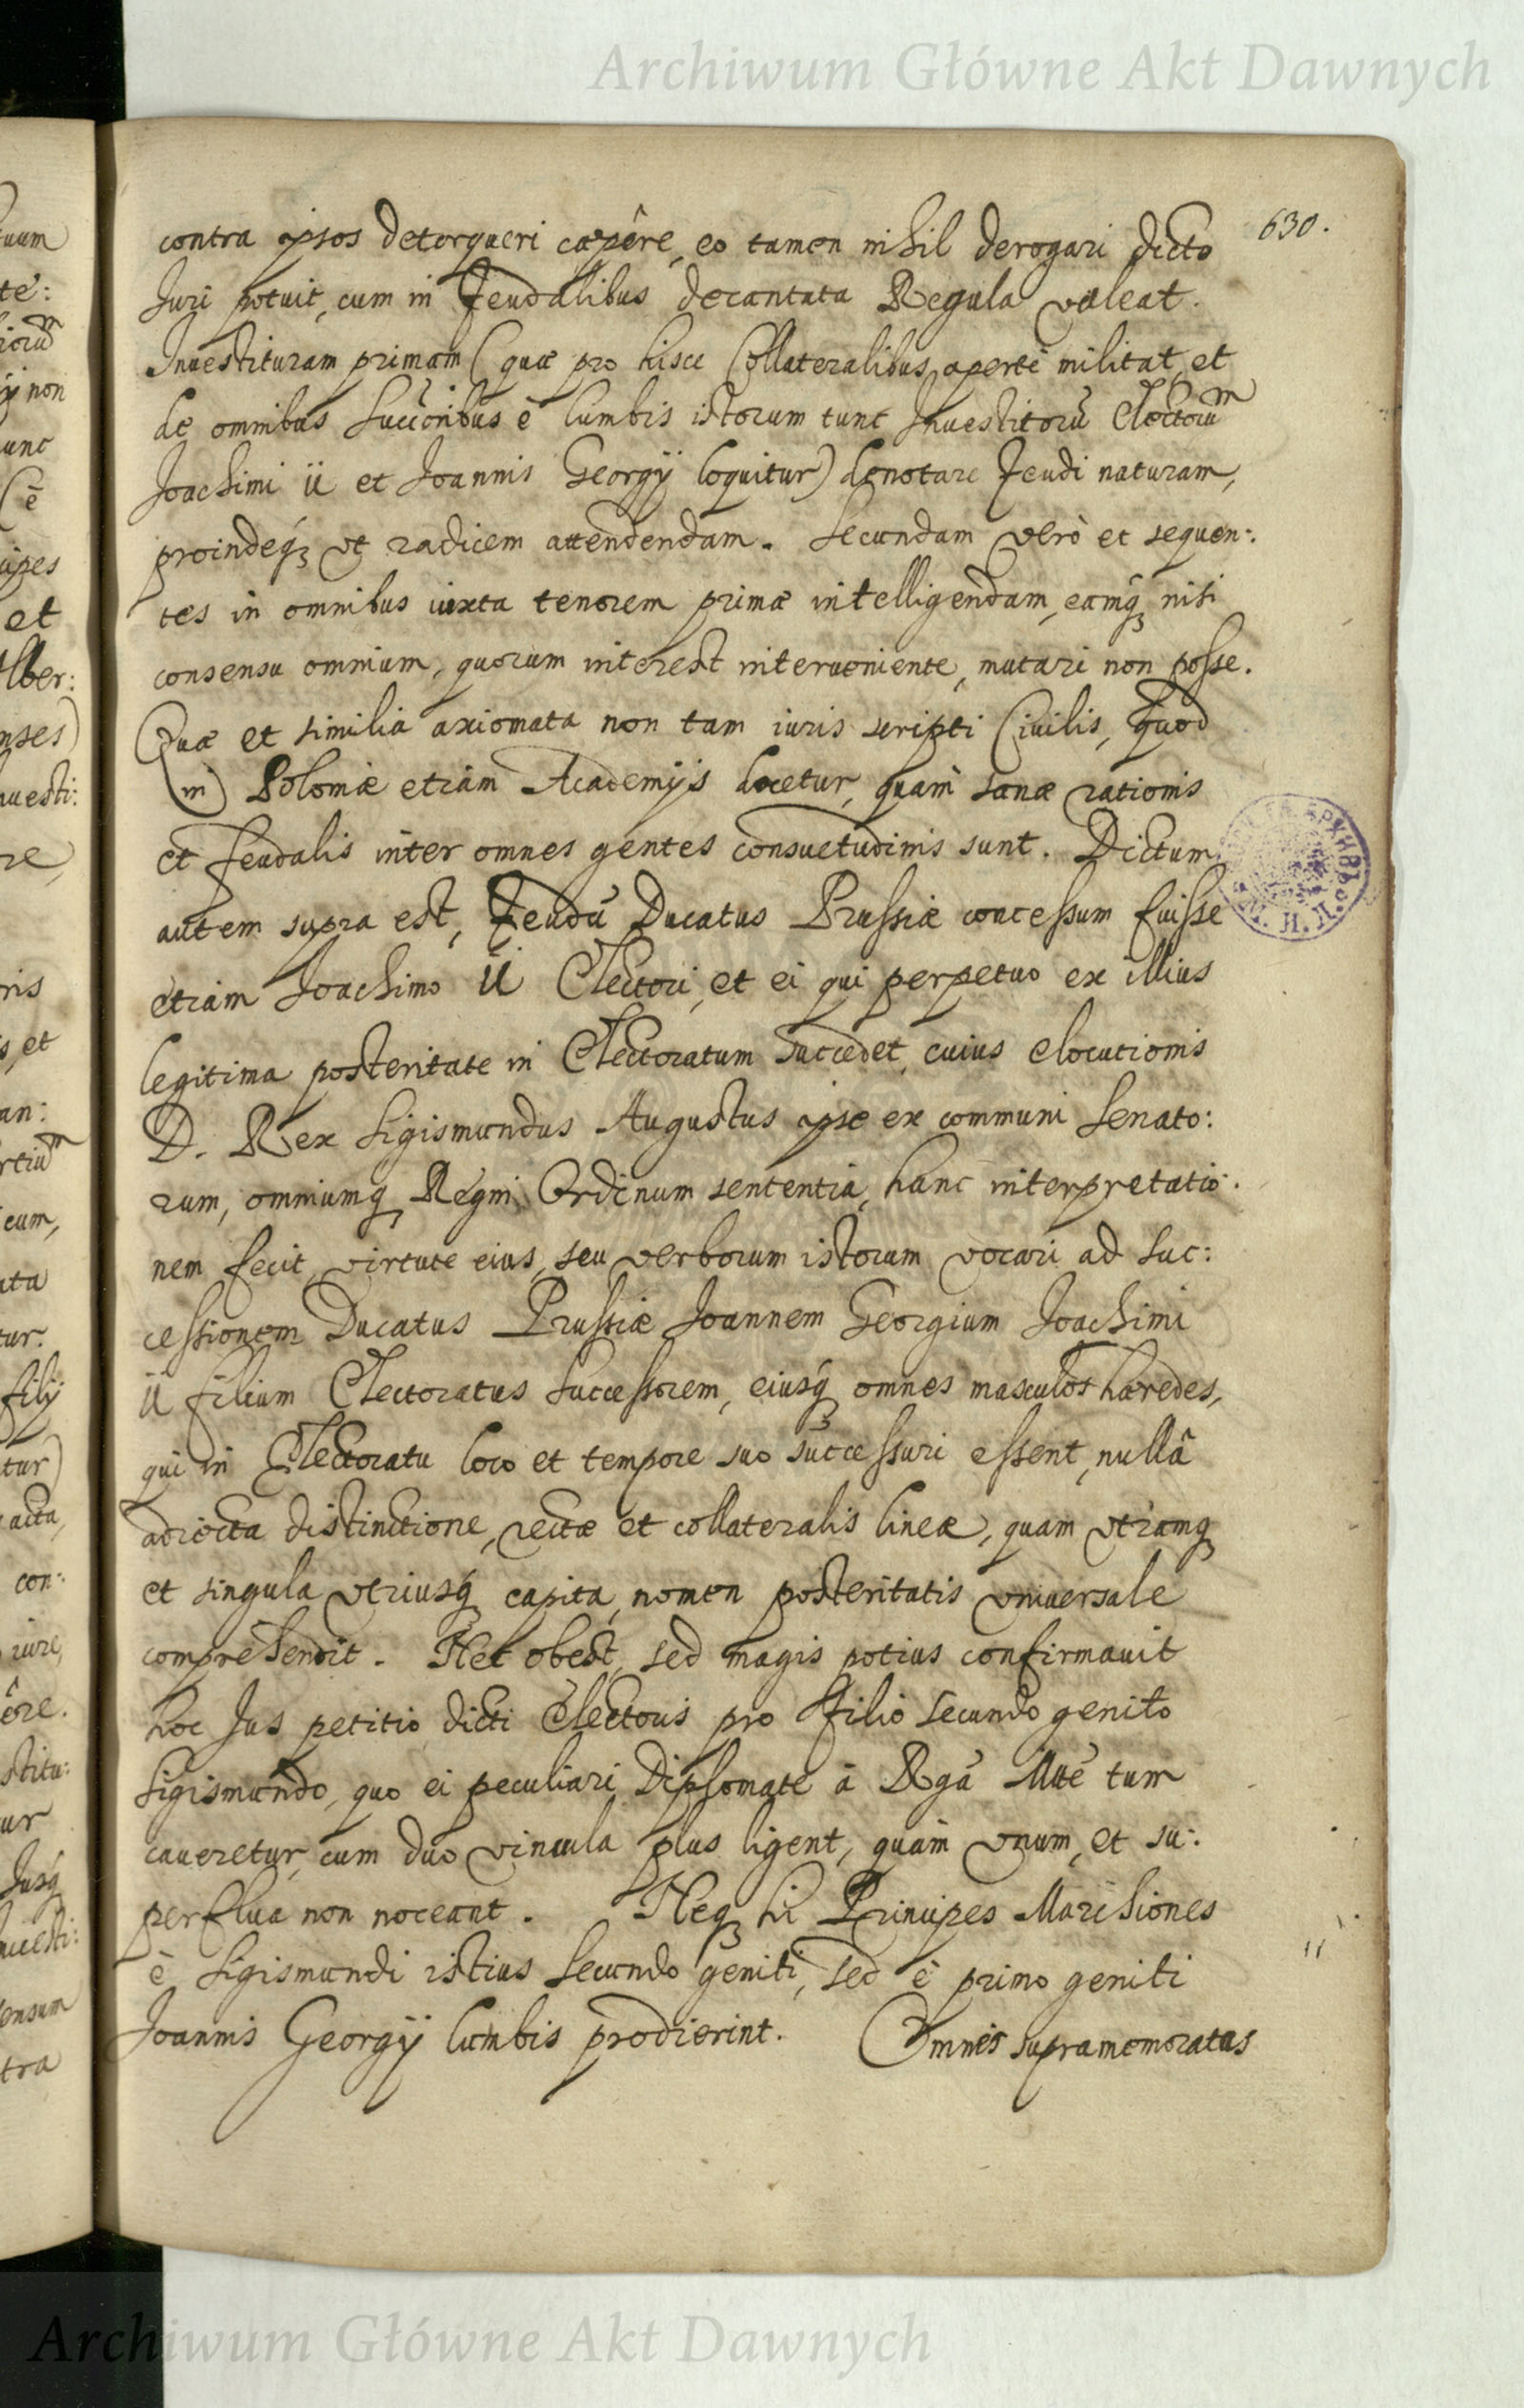 Archiwum Główne Akt Dawnych
630.
contra ipsos detorqueri cæpêre, eo tamen nihil derogari dicto
Juri potuit, cum in Feudalibus decantata Regula valeat.
Inuestituram primam (quæ pro hisce Collateralibus apertè militat, et
de omnibus succoribus è lumbis istorum tunc Inuestitorũ Electorũm
Joachimi ii et Joannis Georgij loquitur) denotare Feudi naturam,
proindeq́ꝫ vt radicem attendendam. Secundam verò et sequen:
tes in omnibus iuxta tenorem primæ intelligendam, eamq́ꝫ nisi
consensu omnium, quorum interest interueniente, mutari non posse.
Quæ et similia axiomata non tam iuris scripti Ciuilis, quod
in Poloniæ etiam Academijs docetur, quàm sanæ rationis
et feudalis inter omnes gentes consuetudinis sunt. Dictum
autem supra est, Feudũ Ducatus Prussiæ concessum fuisse
etiam Joachimo ii Electori, et ei qui perpetuo ex illius
legitima posteritate in Electoratum succedet, cuius elocutionis
D. Rex Sigismundus Augustus ipse ex communi Senato:
rum, omniumq́ꝫ Regni Ordinum sententia, hanc interpretatio:
nem fecit, virtute eius, seu verborum istorum vocari ad suc:
cessionem Ducatus Prussiæ Joannem Georgium Joachimi
ii filium Electoratus Successorem, eiusq́ꝫ omnes masculos hæredes,
qui in Electoratu loco et tempore suo successuri essent, nullâ
adiecta distinctione, rectæ et collateralis lineæ, quam vtramq́ꝫ
et singula vtriusq́ꝫ capita, nomen posteritatis vniuersale
comprehendit. Nec obest, sed magis potius confirmauit
hoc Jus petitio dicti Electoris pro filio secundo genito
Sigismundo, quo ei peculiari Diplomate à Rgã Mtẽ tum
caueretur, cum duo vincula plus ligent, quàm vnum, et su:
perflua non noceant. Neqꝫ hi Principes Marchiones
è Sigismundi istius secundo geniti, sed è primo geniti
Joannis Georgij lumbis prodierint. Omnes supramemoratas
Archiwum Główne Akt Dawnych